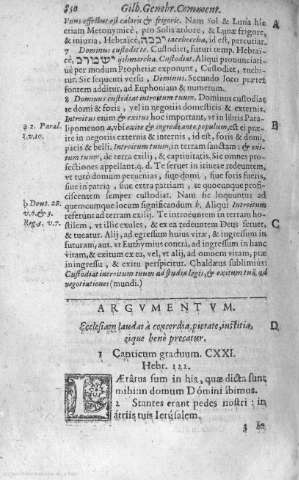 830 Gilb. Genebr. Comment.
Vnius effectus est caloris & frigoris. Nam Sol & Luna hîc
etiam Metonymicè, pro Solis ardore, & Lunæ frigore,
& iniuria, Hebraicè, iaccehecha, id est, percutiat.
7 Dominus custodit te. Custodiet, futuri temp. Hebrai-
cè, ישמורך ischmorcha. Custodiat. Aliqui pronunciati-
uè per modum Prophetiæ exponunt, Custodiet, tuebi-
tur. Sic sequenti versu, Dominus. Secundo loco præter
fontem additur, ad Euphoniam & numerum.
8 Dominus custodiat introitum tuum. Dominus custodiat
te domi & foris, vel in negotijs domesticis & externis.
Introitus enim & exitus hoc important, vt in libris Parali-
pomenon a, absque exitu & ingressu ante populum, id est præi-
re in negotijs externis & internis, id est, foris & domi,
pacis & belli. Introitum tuum, in terram sanctam: & exi-
tum tuum, de terra exilij, & captiuitatis. Sic omnes pro-
fectiones appellat.
tuum domum perueniat, siue domi, siue foris fueris,
siue in patria, siue extra patriam, te quocunque profi-
ciscentem semper custodiat. Nam sic loquuntur ad
quemcumque locum significandum b. Alioqui Introitum
referunt ad terram exilij. Te introeuntem in terram ho-
stilem, vt illic exules, & ex ea redeuntem Deus seruet,
& tueatur. Alij, ad egressum huius vitæ, & ingressum in
futuram, aut vt Euthymius concisi, ad ingressum in hanc
vitam, & exitum ex ea, vel, vt alij, ad omnem vitam, quæ
in ingressu, & exitu perspicitur. Chaldæus sublimiùs
Custodiat introitum tuum ad studia legis, & exitum tuum ad
negotiationes (mundi.)
a 2. Paral.
1.v.10.
b Deut. 28.
v.6. & 3.
Reg. 3. v.7.
A
B
C
D
ARGVMENTVM.
Ecclesiam laudat à concordia, pietate, iustitia,
eique benè precatur.
1 Canticum graduum. CXXI.
Hebr. 122.
LÆtatus sum in his, quæ dicta sunt
mihi: in domum Dómini íbimus.
2 Stantes erant pedes nostri: in
átriis tuis Ierúsalem.
3 Ie-